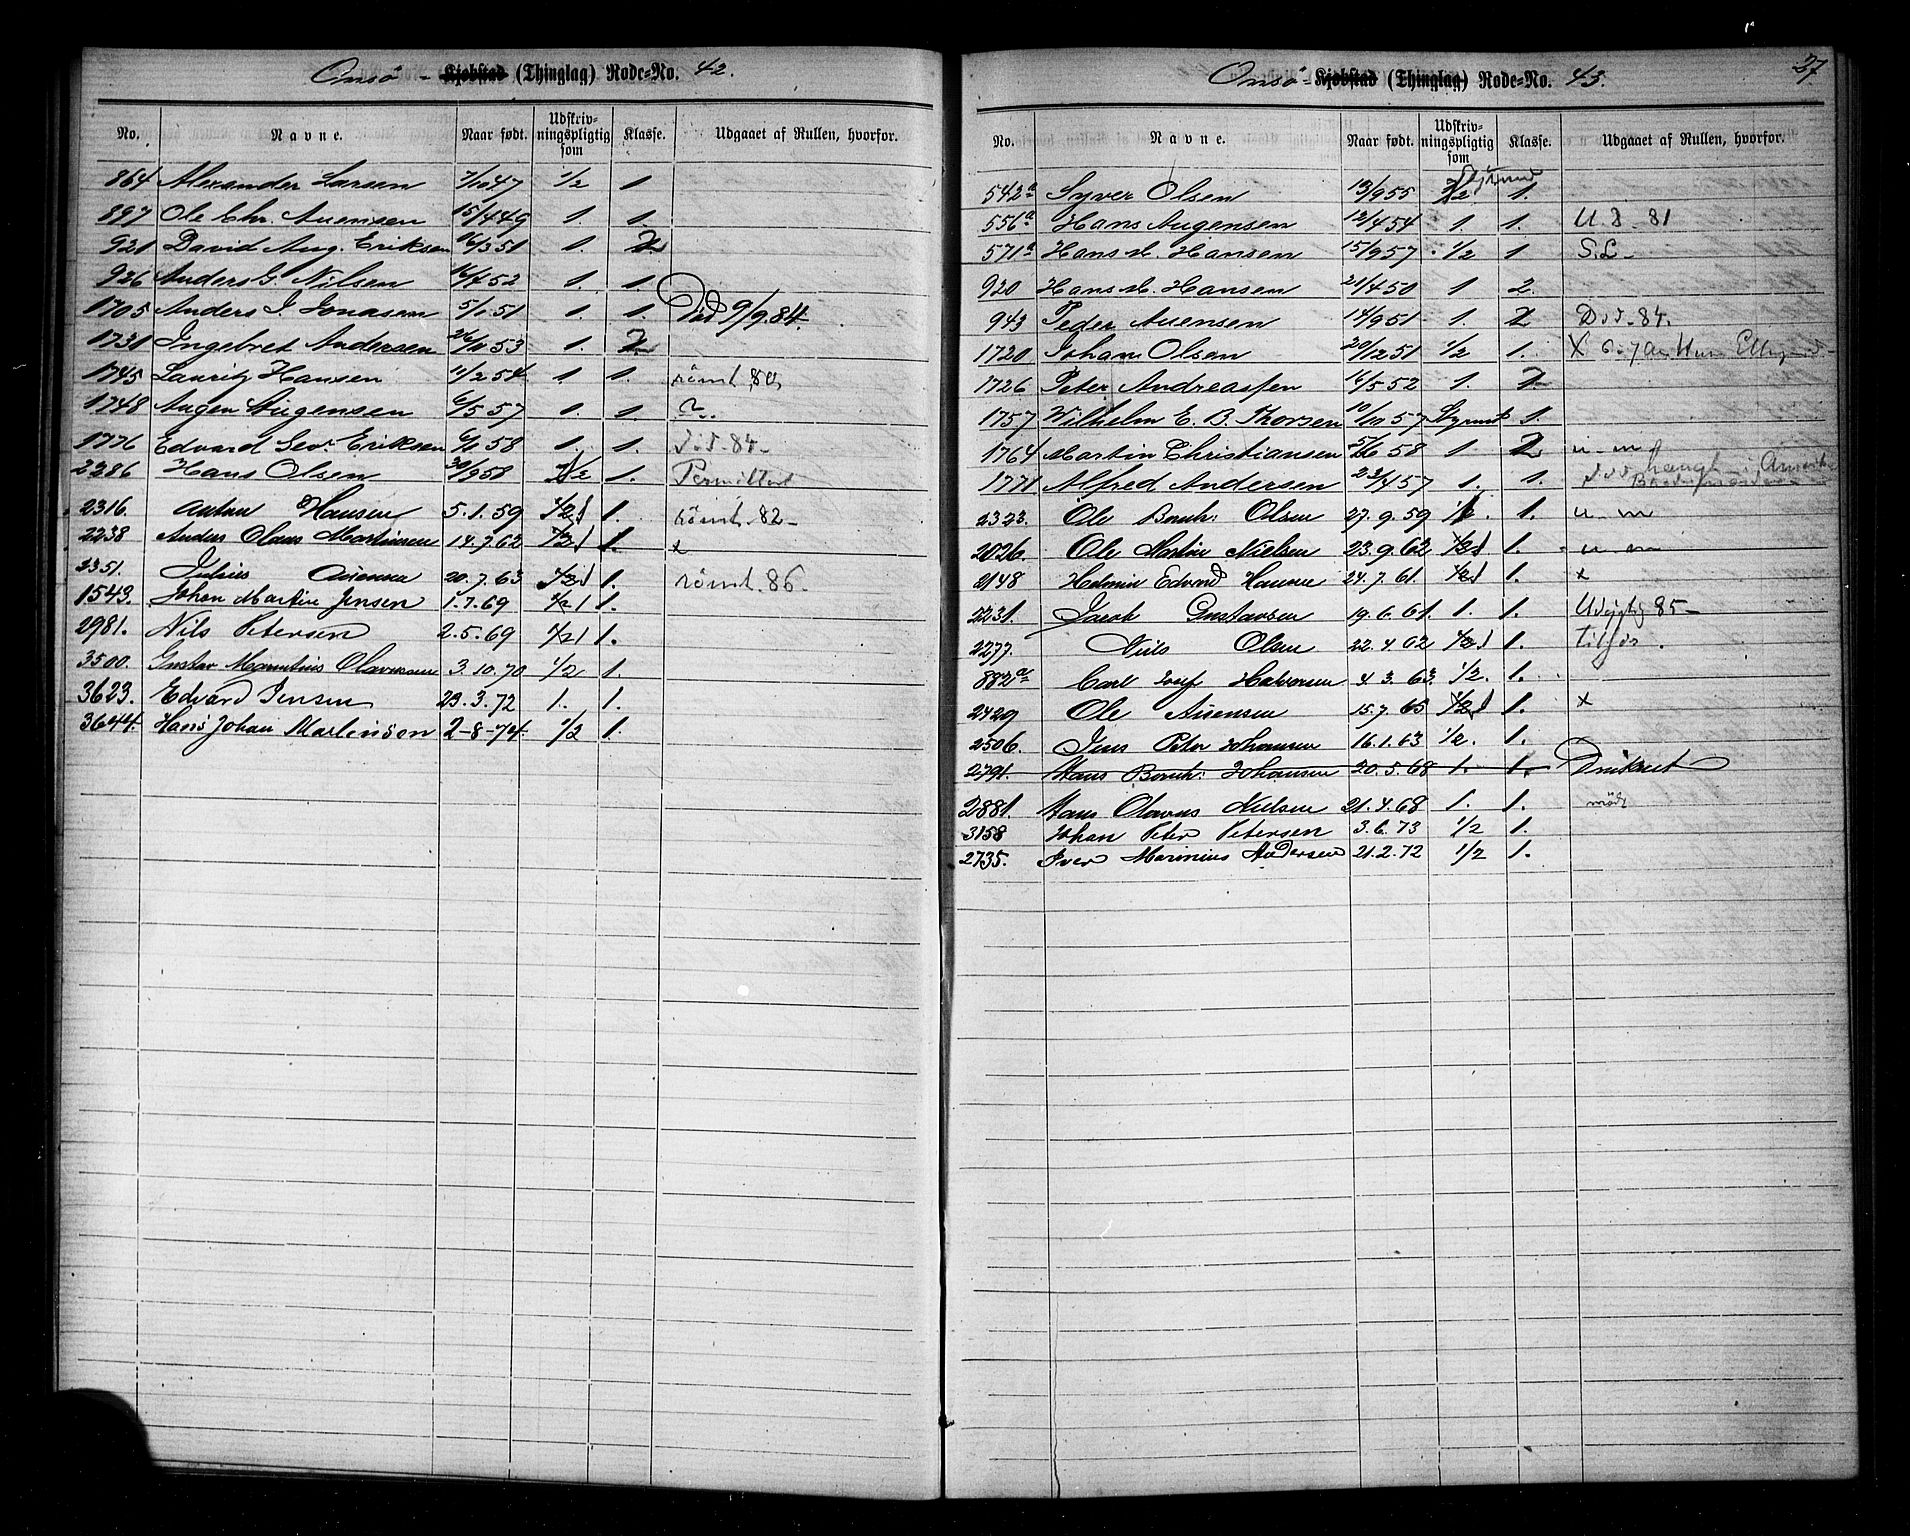 Onsö - Kjøbstad (Thinglag) Rode-No. 42.
No. Navne. Naar født. Udskrivningspligtig som Klasse. Udgaaet af Rullen, hvorfor.
864 Alexander Larsen 7/10 47 1/2 1
897 Ole Chr. Auensen 15/4 49 1. 1.
921 David Aug. Eriksen 16/3 51 1. 2.
926 Anders G. Nilsen 16/7 52 1. 1.
1705 Anders J. Jonasen 5/1 51 1. 1. Död 9/9.84.
1731 Ingebret Andersen 26/11 53 1. 2.
1745 Lauritz Hansen 11/2 54 1 1. römt 80,
1748 Augen Augensen 6/5 57 1. 1 ?.
1776 Edvard Sev. Eriksen 6/11 58 1. 1. död 84.
2286 Hans Olsen 30/9 58 1/2 1. Permittert
2316 Anton Hansen 5.1.59 1/2 1 1. römt 82-
2238 Anders Olaus Martinsen 14.7.62 1/2 1 1. x
2351. Julius Auensen 20.7.63 1/2 1 1. römt. 86.
1543. Johan Martin Jensen 1.7.69 1/2 1 1.
2981. Nils Petersen 2.5.69 1/2 1 1.
3500. Gustav Mauritius Olavesen 3.10.70 1/2 1.
3623. Edvard Jensen 29.3.72 1. 1.
3644. Hans Johan Martinson 2-8-74. 1/2 1.
27
Onsö - Kjøbstad (Thinglag) Rode-No. 43.
No. Navne. Naar født. Udskrivningspligtig som Klasse. Udgaaet af Rullen, hvorfor.
542a Syver Olsen 13/9 55 1/2 Styrmd 1.
556a Hans Augensen 12/4 54 1. 1. U. D - 81
571a Hans M. Hansen 15/9 57 1/2 1 S.L-
920 Hans M. Hansen 21/4 50 1 2.
943 Peder Auensen 14/9 51 1. 2 Död-84.
1720 Johan Olsen 20/12 51 1/2 1. X
1726 Peter Andreassen 16/5 52 1. 2
1757 Wilhelm E. B. Thorsen 10/10 57 Styrmd 1.
1764 Martin Christiansen 5/6 58 1 2 u-m
1771 Alfred Andersen 23/4 57 1. 1. i Amerika
2323. Ole Bernh: Olsen 27.9.59 1/2. 1. u-m
2026. Ole Martin Nielsen 23.9.62 1/2 1 1. u-m
2148 Helmin Edvard Hansen 24.7.61. 1/2 1 1. x
2231. Jacob Gustavsen 19.6.61. 1. 1. Udygtig 85-
2277. Niels Olsen 22.4.62 1/2 1 1. tilsös.
882a Carl Josef Halvorsen 4.3.63. 1/2. 1.
2429 Ole Auensen 15.7.65 1/2 1 1. x
2506. Jens Peter Johansen 16.1.63 1/2. 1.
2791. Hans Bernh: Johansen 20.5.68 1. 1. Druknet
2881. Hans Olavus Nielsen 21.4.68 1. 1. mödt
3158 Johan Peter Petersen 3.6.73 1/2 1.
2735. Iver Marinius Andersen 21.2.72 1/2 1.